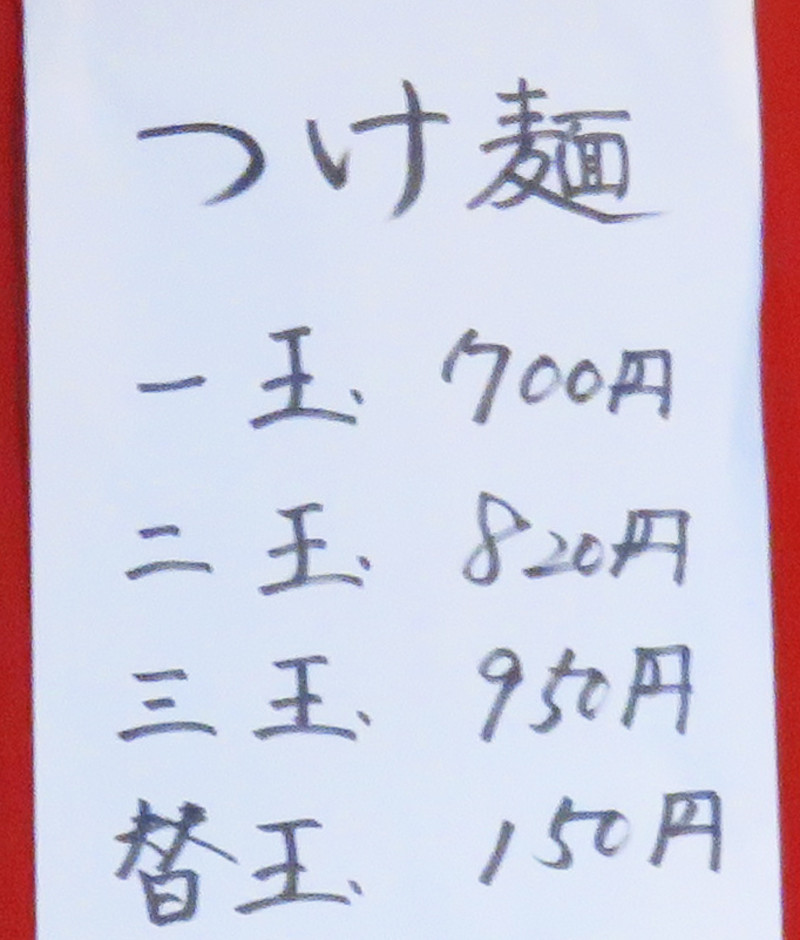 つけ麺
一玉 700円
二玉 820円
三玉 950円
替玉 150円